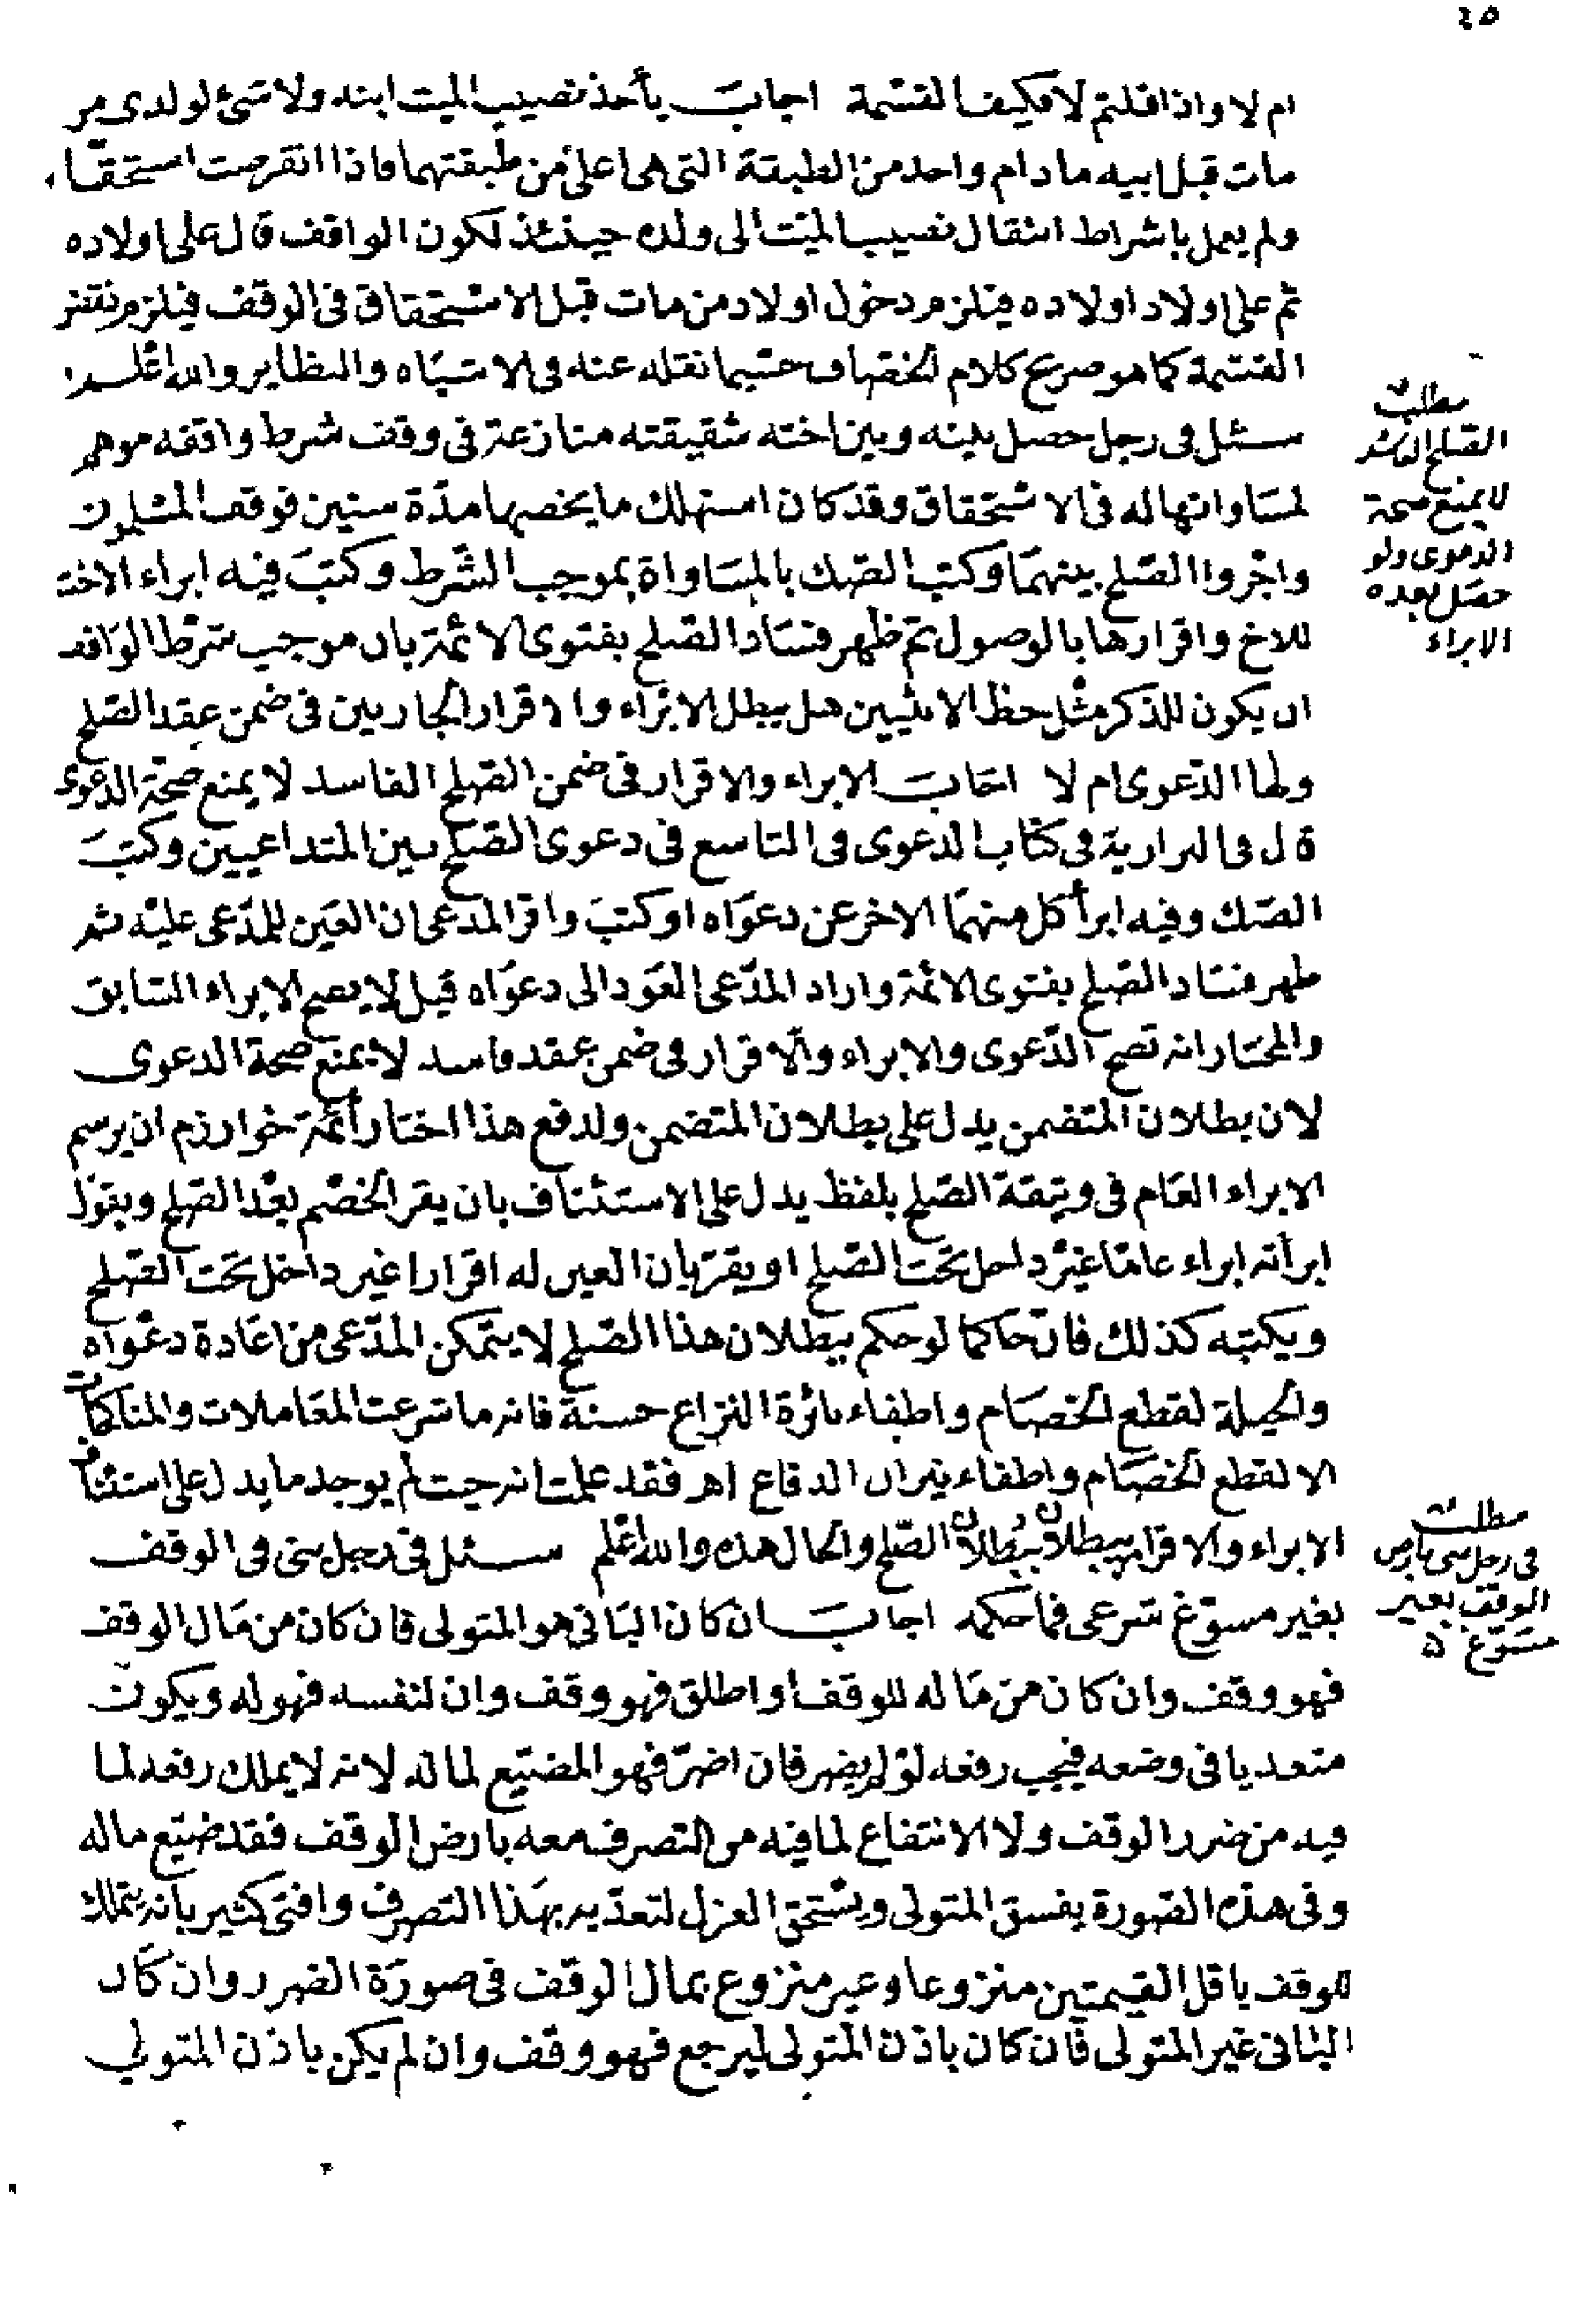 ٤٥
ام لا واذا قلتم لا فكيف القسمة اجاب يأخذ نصيب الميت ابنه ولا شئ لولدى من
مات قبل ابيه ما دام واحد من الطبقة التى هى اعلى من طبقتهما فاذا انقرضت استحقا
ولم يعمل باشراط انتقال نصيب الميت الى ولده حينئذ لكون الواقف قال على اولاده
ثم على اولاد اولاده فيلزم دخول اولاد من مات قبل الاستحقاق فى الوقف فيلزم نقض
القسمة كما هو صريح كلام الخصاف حسبما نقله عنه فى الاشباه والنظاير والله اعلم
سئل فى رجل حصل بينه وبين اخته شقيقته منازعة فى وقف شرط واقفه موهم
لمساواتها له فى الاستحقاق وقد كان استهلك ما يخصها مدة سنين فوقف المسلمون
واجروا الصلح بينهما وكتب الصك بالمساواة بموجب الشرط وكتب فيه ابراء الاخت
للاخ واقرارها بالوصول ثم ظهر فساد الصلح بفتوى الائمة بان موجب شرط الواقف
ان يكون للذكر مثل حظ الانثيين هل يبطل الابراء والاقرار الجاريين فى ضمن عقد الصلح
ولها الدعوى ام لا اجاب الابراء والاقرار فى ضمن الصلح الفاسد لا يمنع صحة الدعوى
قال فى البزازية فى كتاب الدعوى فى التاسع فى دعوى الصلح بين المتداعيين وكتب
الصك وفيه ابرأ كل منهما الاخر عن دعواه او كتب واقر المدعى ان العين للمدعى عليه ثم
ظهر فساد الصلح بفتوى الائمة واراد المدعى العود الى دعواه قيل لا يصح للابراء السابق
والمختار انه تصح الدعوى والابراء والاقرار فى ضمن عقد فاسد لا يمنع صحة الدعوى
لان بطلان المتضمن يدل على بطلان المتضمن ولدفع هذا اختار أئمة خوارزم ان يرسم
الابراء العام فى وثيقة الصلح بلفظ يدل على الاستئناف بان يقر الخصم بعد الصلح ويقول
ابرأته ابراء عاما غير داخل تحت الصلح او يقر بان العين له اقرارا غير داخل تحت الصلح
ويكتبه كذلك فان حاكما لو حكم ببطلان هذا الصلح لا يتمكن المدعى من اعادة دعواه
والحيلة لقطع الخصام واطفاء نائرة النزاع حسنة فانه ما شرعت المعاملات والمناكحات
الا لقطع الخصام واطفاء نيران الدفاع اهـ فقد علمت انه حيث لم يوجد ما يدل على استئناف
الابراء والاقرار يبطلان ببطلان الصلح والحال هذه والله اعلم سئل فى رجل بنى فى الوقف
بغير مسوغ شرعى فما حكمه اجاب ان كان البانى هو المتولى فان كان من مال الوقف
فهو وقف وان كان من ماله للوقف او اطلق فهو وقف وان لنفسه فهو له ويكون
متعديا فى وضعه فيجب رفعه لو لم يضر فان اضر فهو المضيع لماله لانه لا يملك رفعه لما
فيه من ضرر الوقف ولا الانتفاع لما فيه من التصرف معه بارض الوقف فقد ضيع ماله
وفى هذه الصورة يفسق المتولى ويستحق العزل لتعديه بهذا التصرف وافتى كثير بانه يتملك
للوقف باقل القيمتين منزوعا وغير منزوع بمال الوقف فى صورة الضرر وان كان
البانى غير المتولى فان كان باذن المتولى ليرجع فهو وقف وان لم يكن باذن المتولي
مطلب
الصلح الفاسد
لا يمنع صحة
الدعوى ولو
حصل بعده
الابراء
مطلب
فى رجل بنى بارض
الوقف بغير
مسوغ